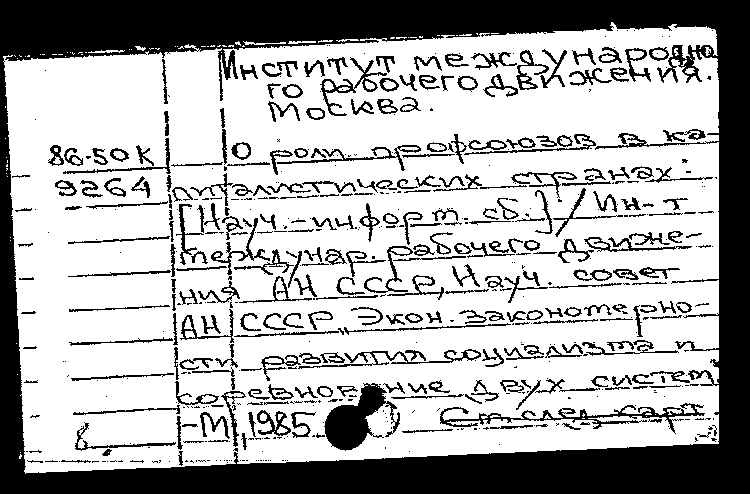 Институт международно
го рабочего движения.
Москва.
86-50К
9264
О роли профсоюзов в ка-
питалистических странах:
[Науч.-информ. сб.] / Ин-т
междунар. рабочего движе-
ния АН СССР, Науч. совет
АН СССР „Экон. закономерно-
сти развития социализма и
соревнование двух систем.
-М, 1985
См след карт.
8.